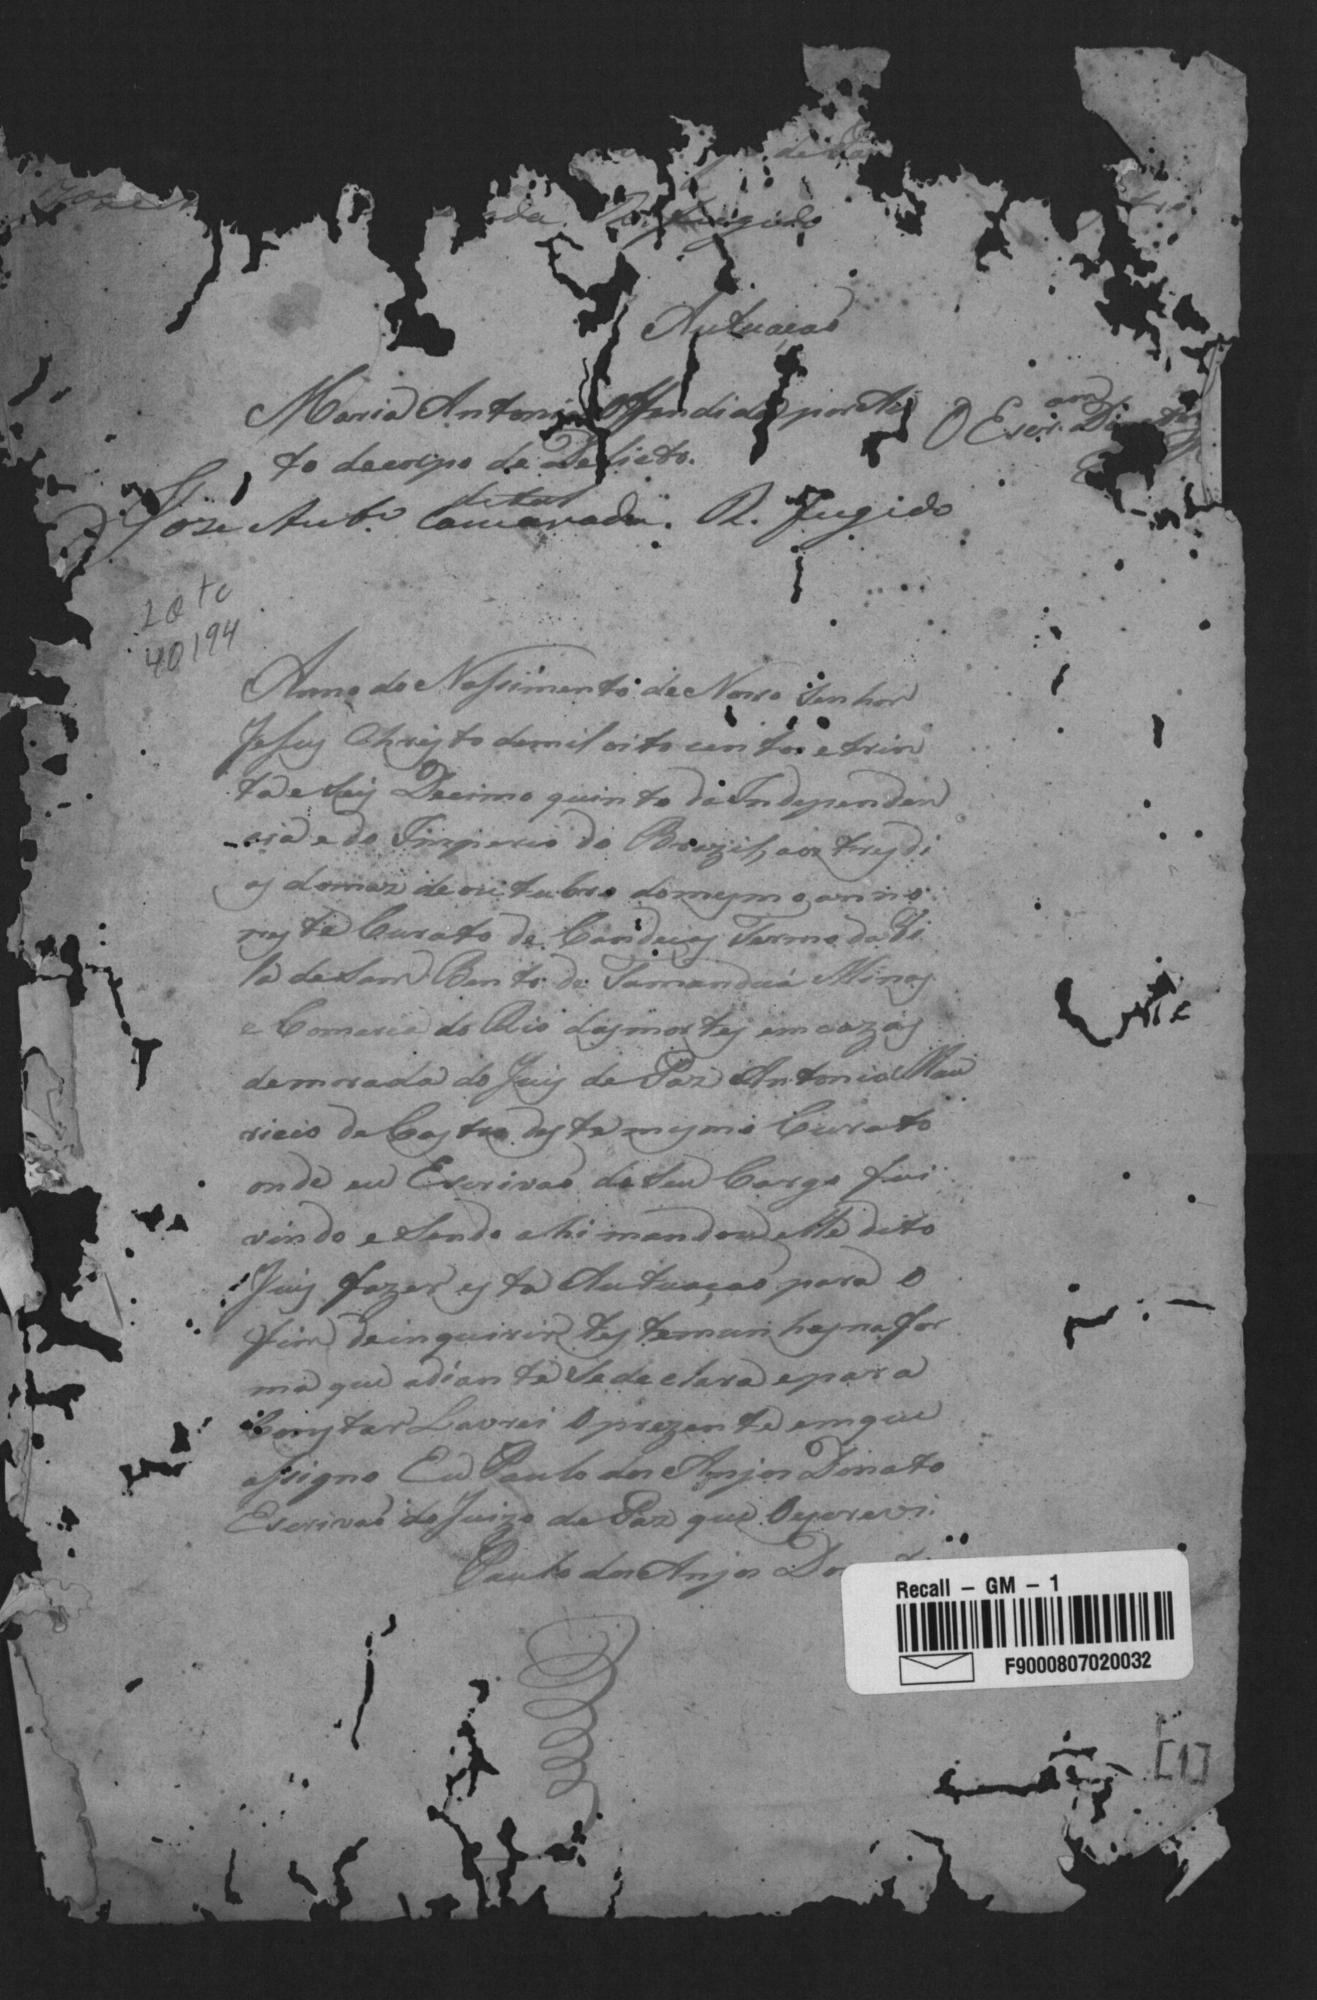 Fugido
Autuaçaõ
Maria Antonia Offendida por Au
to de corpo de Delicto.
O Escr.am
de tal
Joze Camarada. R. Fugido
40194
Anno do Nassimento de Nosso Senhor
Jesus Christo de mil oito centos e trin
ta e seis Decimo quinto da Independen
cia e do Imperio do Brazil, aos tres di
as do mez de outubro do mesmo anno
neste Curato de Candeas Termo da Vi
la de Sam Bento de Tamanduá Minas
e Comarca do Rio das mortes em cazas
de morada do Juis de Paz Antonio Mau
ricio de Castro deste mesmo Curato
onde eu Escrivaõ de seu Cargo fui
vindo e sendo ahi mandou elle dito
Juis fazer esta Autuaçaõ para o
fim de inquirir testemunhas na for
ma que adiante se declara e para
Constar Lavrei o prezente em que
assigno Eu Paulo dos Anjos Donato
Escrivaõ do Juizo de Paz que o escrevi.
Paulo dos Anjos
Recall – GM – 1
F9000807020032
[1]